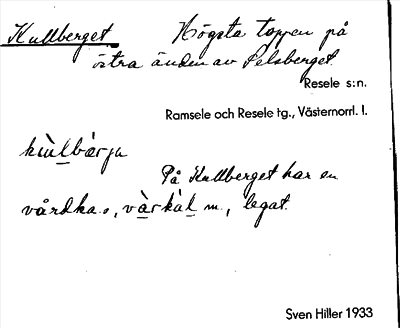 Kullberget. Högsta toppen på
östra änden av Pelsberget.
Resele s:n.
Ramsele och Resele tg., Västernorrl. l.
På Kullberget har en
vårdka.., vàrkàl m., legat.
Sven Hiller 1933